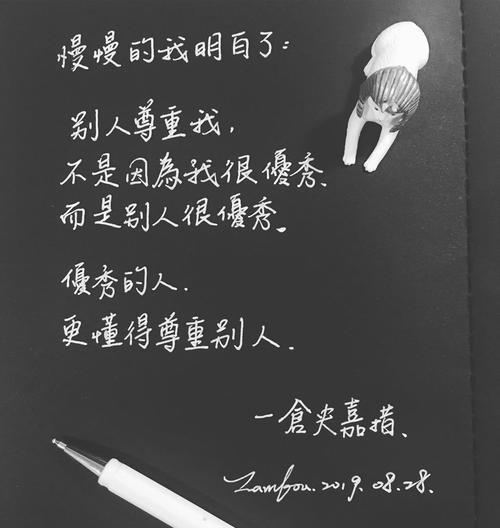 慢慢的我明白了：
别人尊重我，
不是因為我很優秀.
而是别人很優秀.
優秀的人.
更懂得尊重别人.
一倉央嘉措、
2019.08.28.